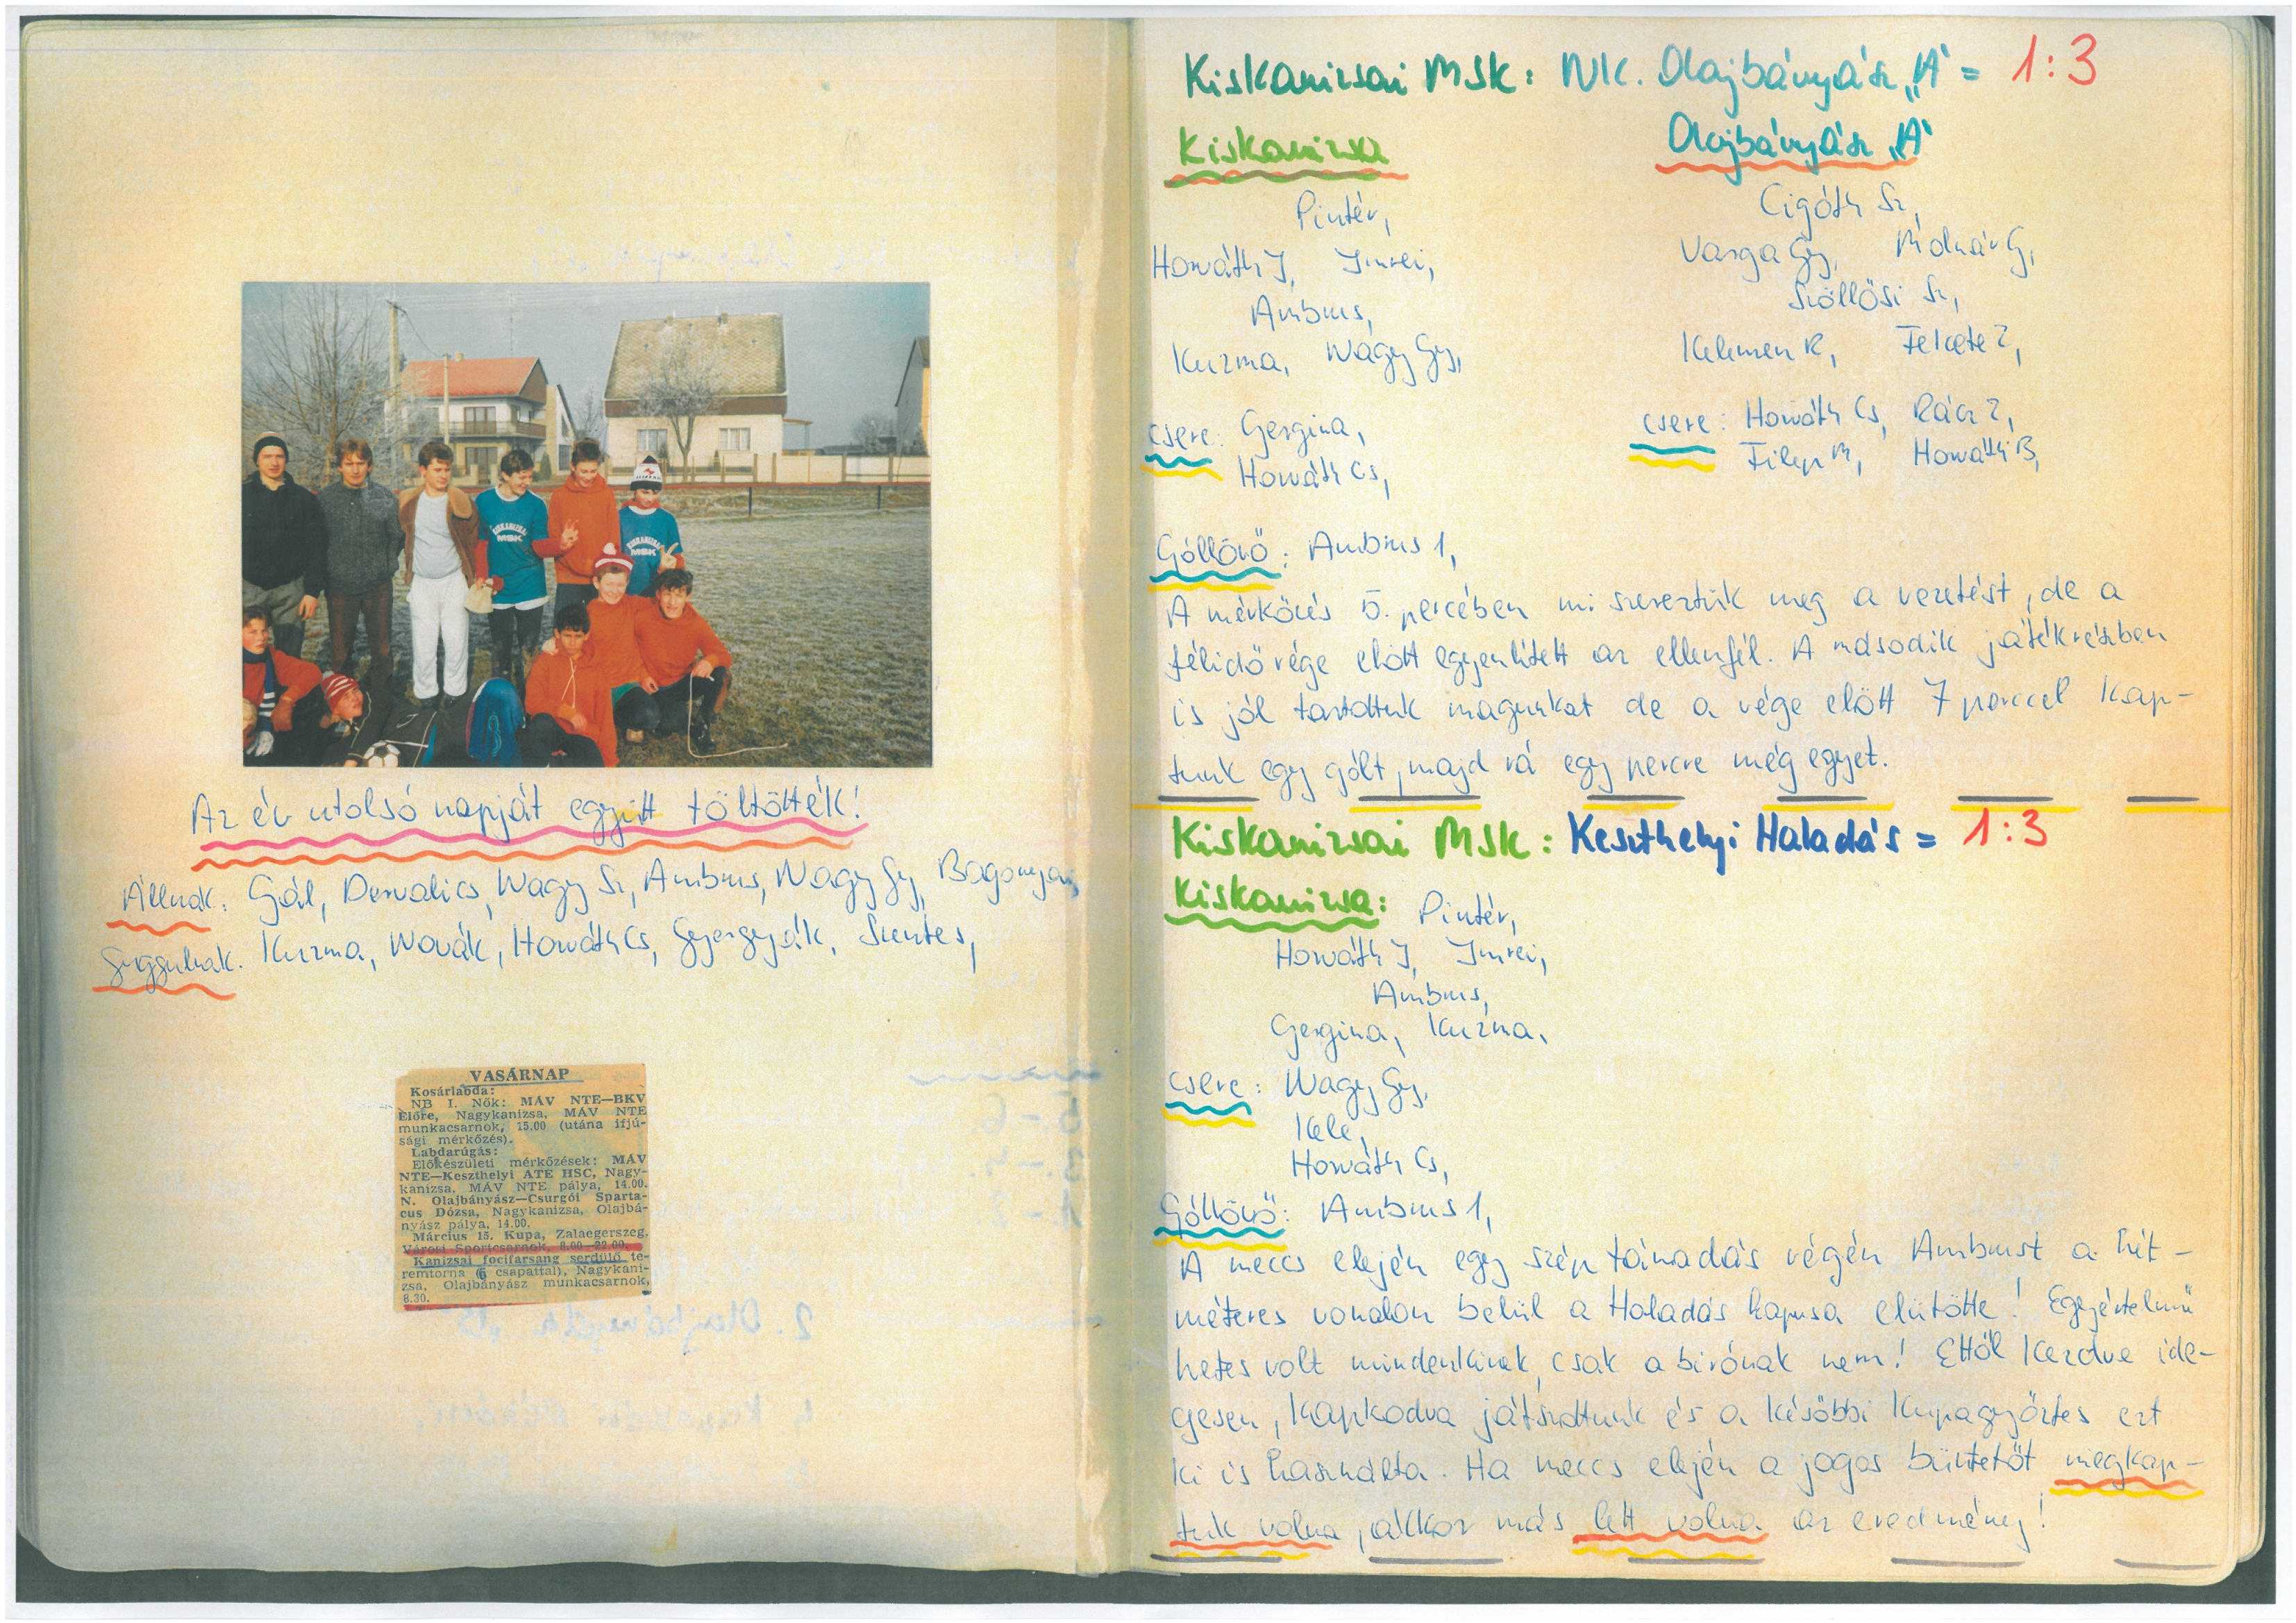 KISKANIZSA
MSK
KISKANIZSA
MSK
Az év utolsó napját együtt töltötték!
Állnak: Gál, Dervalics, Nagy Sz, Ambrus, Nagy Gy, Bagonyai,
Guggolnak: Kuzma, Novák, Horváth Cs, Gyergyák, Szentes,
VASÁRNAP
Kosárlabda:
NB I. Nők: MÁV NTE—BKV
Előre, Nagykanizsa, MÁV NTE
munkacsarnok, 15.00 (utána ifjú-
sági mérkőzés).
Labdarúgás:
Előkészületi mérkőzések: MÁV
NTE—Keszthelyi ATE HSC, Nagy-
kanizsa, MÁV NTE pálya, 14.00.
N. Olajbányász—Csurgói Sparta-
cus Dózsa, Nagykanizsa, Olajbá-
nyász pálya, 14.00.
Március 15. Kupa, Zalaegerszeg,
Városi Sportcsarnok, 8.00—22.00.
Kanizsai focifarsang serdülő te-
remtorna (6 csapattal), Nagykani-
zsa, Olajbányász munkacsarnok,
8.30.
Kiskanizsai MSK: NK. Olajbányász „A" = 1:3
Kiskanizsa
Olajbányász „A"
Pintér,
Horváth J, Imrei,
Ambrus,
Kuzma, Nagy Gy,
csere: Gergina,
Horváth Cs,
Cigóth Sz,
Varga Gy, Molnár G,
Szöllősi Sz,
Kelemen R, Fekete Z,
csere: Horváth Cs, Rácz Z,
Filep M, Horváth B,
Góllövő: Ambrus 1,
A mérkőzés 5. percében mi szereztük meg a vezetést, de a
félidő vége előtt egyenlített az ellenfél. A második játékrészben
is jól tartottuk magunkat de a vége előtt 7 perccel kap-
tunk egy gólt, majd rá egy percre még egyet.
Kiskanizsai MSK: Keszthelyi Haladás = 1:3
Kiskanizsa: Pintér,
Horváth J, Imrei,
Ambrus,
Gergina, Kuzma,
csere: Nagy Gy,
Kele,
Horváth Cs,
Góllövő: Ambrus 1,
A meccs elején egy szép támadás végén Ambrust a hét-
méteres vonalon belül a Haladás kapusa elütötte! Egyértelmű
hetes volt mindenkinek, csak a bírónak nem! Ettől kezdve ide-
gesen, kapkodva játszottunk és a későbbi kupagyőztes ezt
ki is használta. Ha meccs elején a jogos büntetőt megkap-
tuk volna, akkor más lett volna az eredmény!